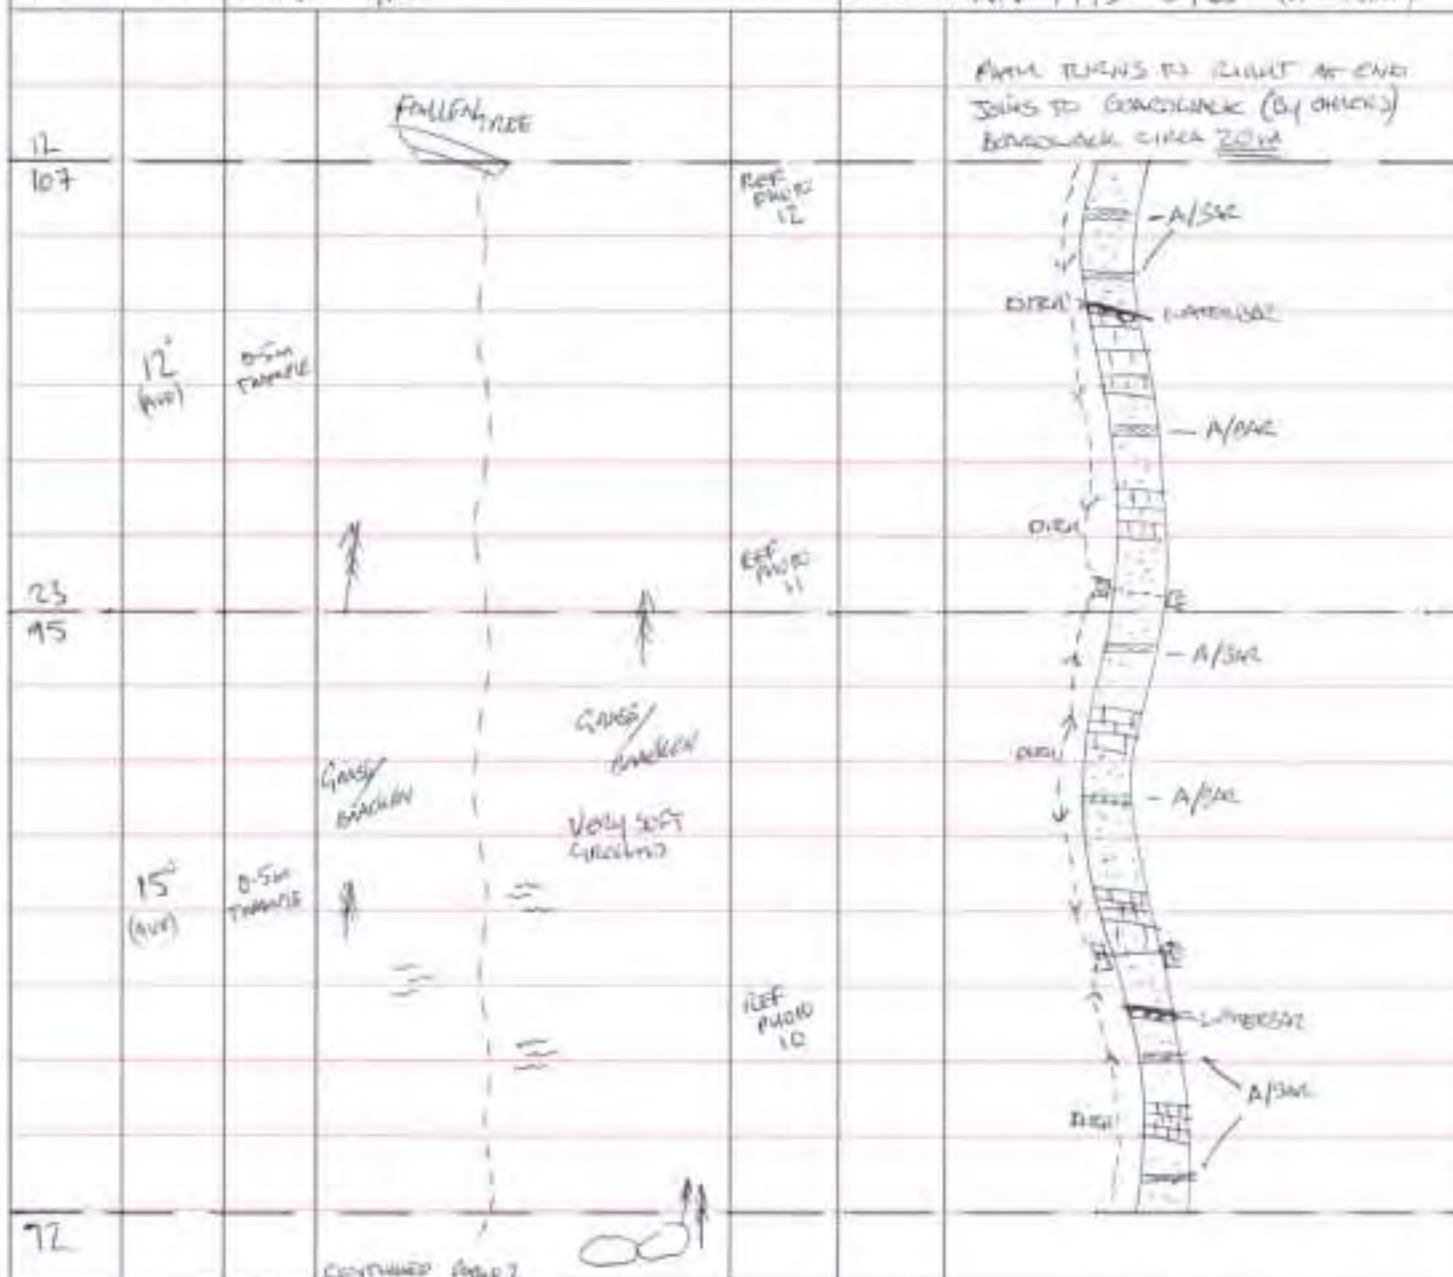 PATH TURNS TO RIGHT AT END
JOINS TO BOARDWALK (BY OTHERS)
BOARDWALK CIRCA 20M
FALLEN TREE
12
107
REF
PHOTO
12
- A/BAR
DITCH
WATERBAR
12°
(AVE)
0.5m
TRAMPLE
- A/BAR
DITCH
REF
PHOTO
11
23
95
- A/BAR
GRASS/
BRACKEN
DITCH
GRASS/
BRACKEN
- A/BAR
VERY SOFT
GROUND
15°
(AVE)
0.5m
TRAMPLE
REF
PHOTO
10
WATERBAR
A/BAR
DITCH
72
CONTINUED